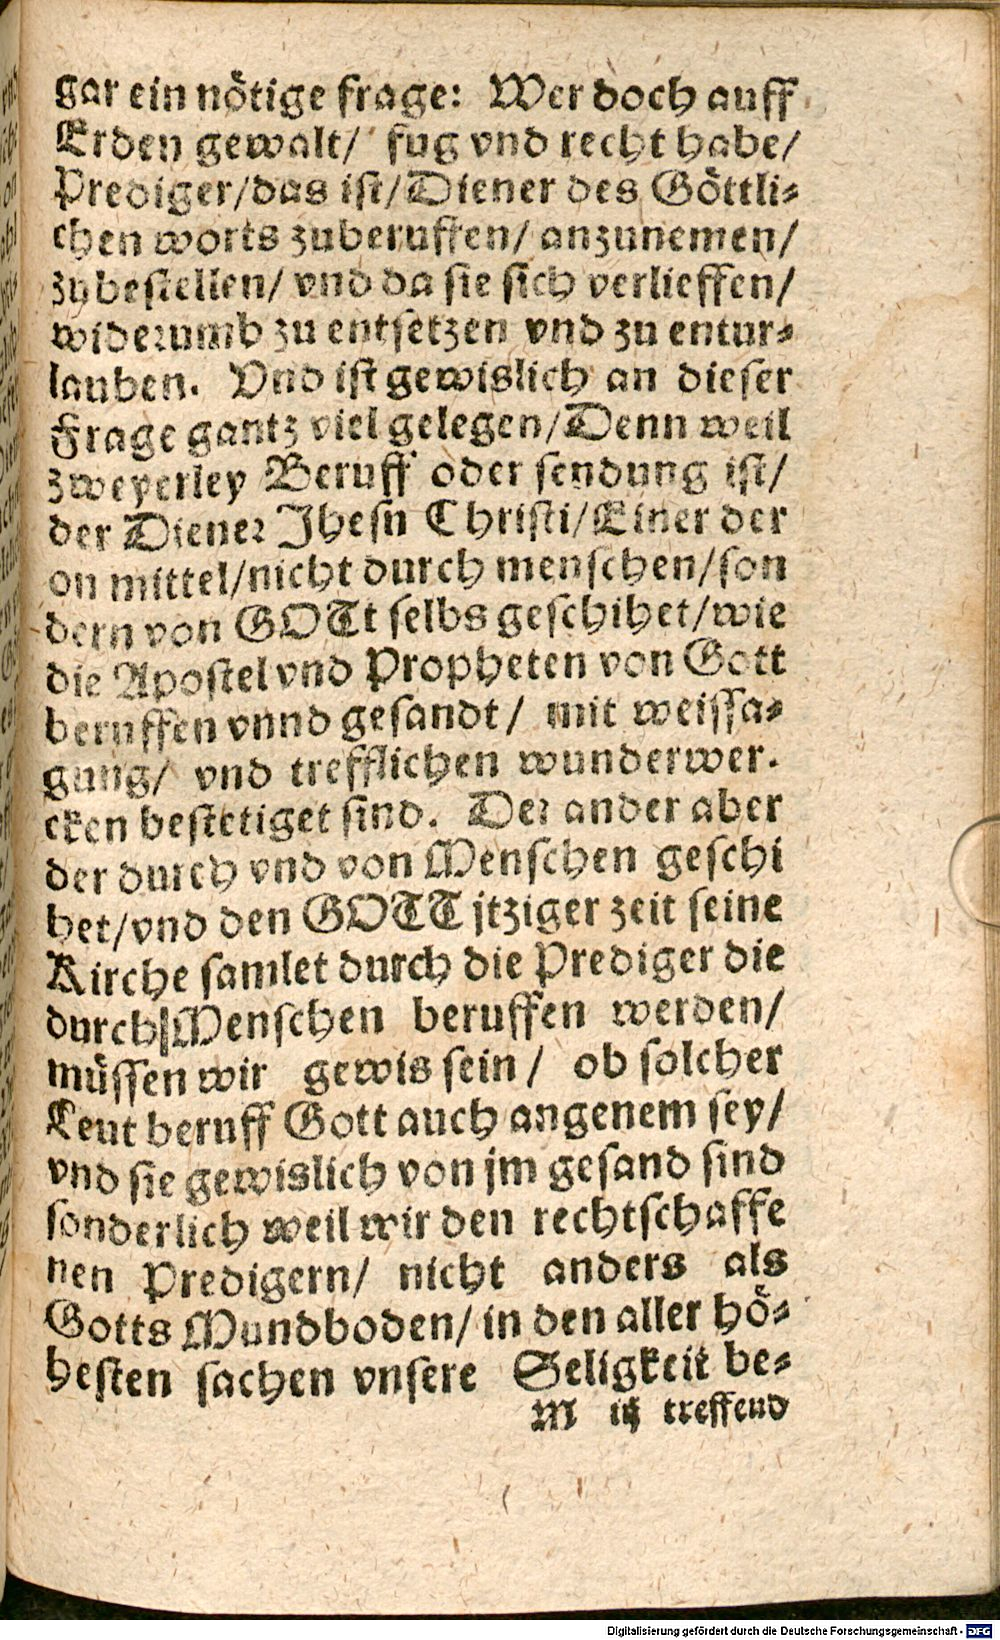 gar ein nötige frage: Wer doch auff
Erden gewalt/ fug vnd recht habe/
Prediger/das ist/Diener des Göttli-
chen worts zuberuffen/ anzunemen/
zubestellen/ vnd da sie sich verlieffen/
widerumb zu entsetzen vnd zu entur-
lauben. Vnd ist gewislich an dieser
Frage gantz viel gelegen/Denn weil
zweyerley Beruff oder sendung ist/
der Diener Jhesn Christi/Einer der
on mittel/nicht durch menschen/son
dern von GOTt selbs geschihet/wie
die Apostel vnd Propheten von Gott
beruffen vnnd gesandt/ mit weissa-
gung/ vnd trefflichen wunderwer.
cken bestetiget sind. Der ander aber
der durch vnd von Menschen geschi
het/vnd den GOTT jtziger zeit seine
Kirche samlet durch die Prediger die
durch Menschen beruffen werden/
müssen wir gewis sein/ ob solcher
Leut beruff Gott auch angenem sey/
vnd sie gewislich von jm gesand sind
sonderlich weil wir den rechtschaffe
nen Predigern/ nicht anders als
Gotts Mundboden/ in den aller hö-
hesten sachen vnsere Seligkeit be-
M iij treffend
Digitalisierung gefördert durch die Deutsche Forschungsgemeinschaft - DFG